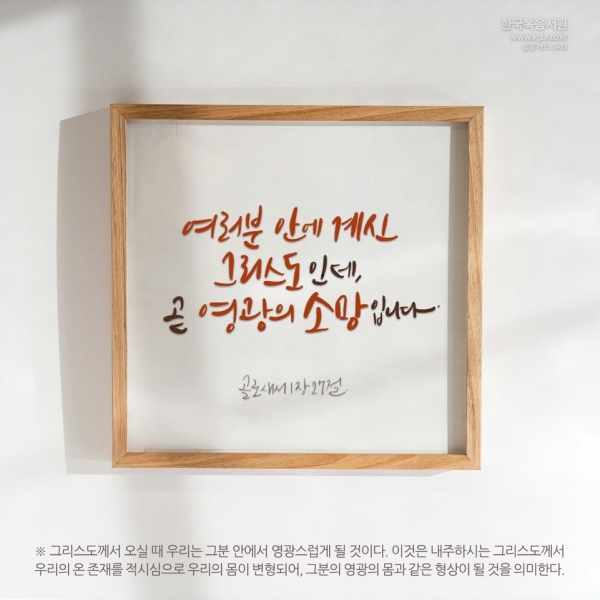 한국복음서원
www.kgbr.co.kr
여러분 안에 계신
그리스도인데,
곧 영광의 소망입니다.
골로새서 1장 27절
※ 그리스도께서 오실 때 우리는 그분 안에서 영광스럽게 될 것이다. 이것은 내주하시는 그리스도께서
우리의 온 존재를 적시심으로 우리의 몸이 변형되어, 그분의 영광의 몸과 같은 형상이 될 것을 의미한다.